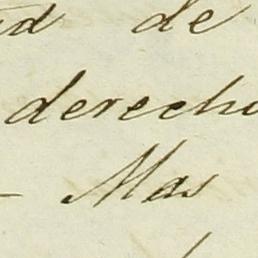 de
derecho
- Mas